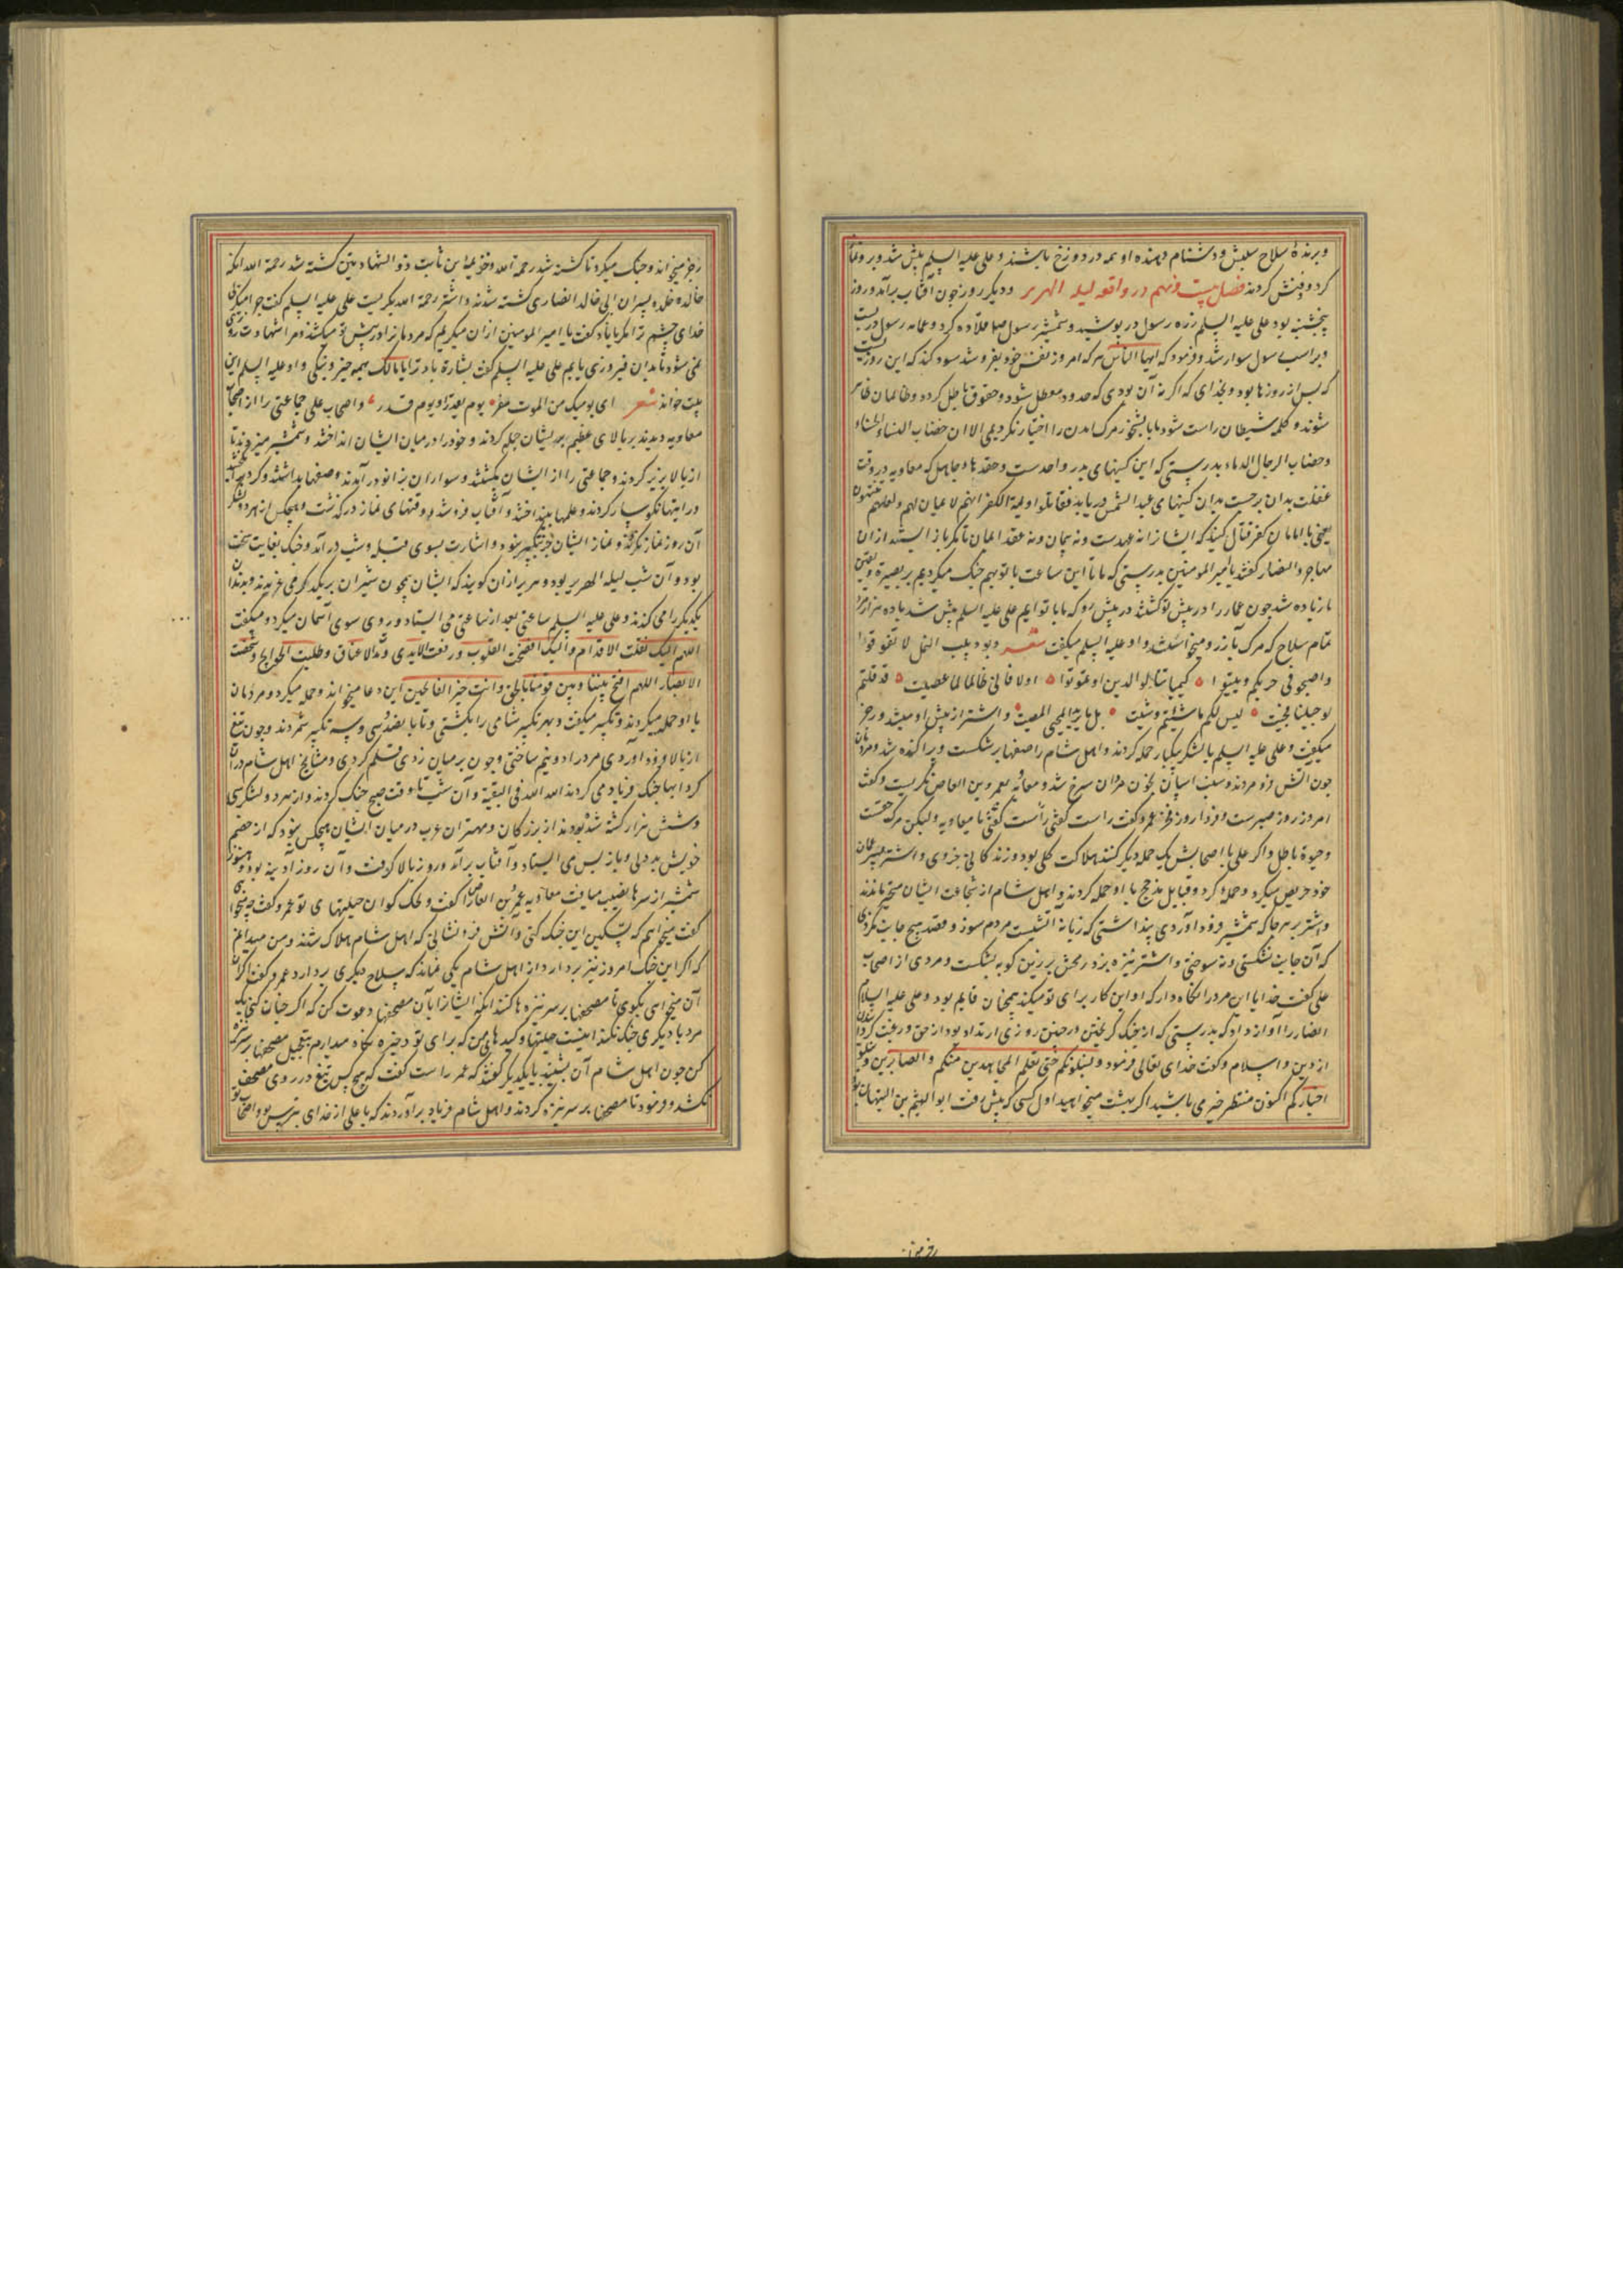 و برندهٔ سلاح سلبش و دشنام دهنده او همه در دوزخ باشند و علی علیه السلم پیش شد و بر و نماز
کرد و دفنش کردند فصل بیست و نهم در واقعه لیلة الهریر و دیگر روز چون آفتاب برآمد و روز
پنجشنبه بود علی علیه السلم زره رسول در پوشید و شمشیر رسول صلعم قلاده کرد و عمامه رسول در بست
و بر اسب رسول سوار شد و فرمود که ایها الناس هر که امروز نفس خود بفروشد سود کند که این روزیست
که پس از روزها بود و بخدای که اگر نه آن بودی که حدود معطل شود و حقوق باطل گردد و ظالمان ظاهر
شوند و کلمه شیطان راست شود ما باختیار مرگ آمدن را اختیار نکردیمی الا ان خضاب النساء الحناء
و خضاب الرجال الدماء بدرستی که این کینهای بدر و احدست و حقدها جاهل که معاویه در وقت
غفلت بدان برجست بدان کینهای عبد الشمس در یابد فقاتلوا اولیة الکفر انهم لا ایمان لهم و لعلهم ینتهون
یعنی با امامان کفر قتال کنید که ایشانرا نه عهدست و نه پیمان و نه عقد ایمان تا مگر باز ایستند ازان
مهاجر و انصار گفتند یا امیر المومنین بدرستی که ما تا این ساعت با تو بهم جنگ میکردیم بر بصیرة و یقین
ما زیاده شد چون عمار را در پیش تو کشتند در پیش رو که ما با توایم علی علیه السلم پیش شد با ده هزار مرد
تمام سلاح که مرگ بآرزو میخواستند و او علیه السلم میگفت شعر دبوا دبیب النمل لا تفوتوا
و اصبحوا فی حربکم و بیتوا کیما تنالوا الدین او تموتوا اولا فانی طالما لما عصیت قد قلتم
لو جئتنا فجیت لیس لکم ما شئتم و شئت بل ما یرید المحیی الممیت و اشتر از پیش او میشد و رجز
میگفت و علی علیه السلم با لشکر بیکبار حمله کردند و اهل شام را صفها بر شکست و پراکنده شد و مردمان
چون آتش فرو مردند و سنب اسپان بخون مردان سرخ شد و معاویه بعمرو بن العاص نگریست و گفت
امروز روز صبرست و فردا روز فخر عمرو گفت راست گفتی راست گفتی یا معاویه ولیکن مرگ حقست
و حیوة باطل و اگر علی با اصحابش یک حمله دیگر کنند هلاکت کلی بود و زندکانی جزوی و اشتر همسران
خود حریص میکرد و حمله کرد و قبایل مذحج با او حمله کردند و اهل شام از شجاعت ایشان متحیر ماندند
و اشتر بهر جا که شمشیر فرود آوردی پنداشتی که زبانه آتشست مردم سوز و قصد هیچ جانب نکردی
که آن جانب نشکستی و نه سوختی و اشتر نیزه بزد و رمحش بر زین کوهه بشکست و مردی از اصحاب
علی گفت خدایا این مرد را نگاه دار که او این کار برای تو میکند همچنان قایم بود و علی علیه السلام
انصار را آواز داد که بدرستی که از جنگ گریختن در چنین روزی ارتداد بود از حق و رغبت کردن
از دین و اسلام و گفت خدای تعالی فرمود و لنبلونکم حتی نعلم المجاهدین منکم و الصابرین و نبلو
اخبارکم اکنون منتظر چه می باشید اگر بهشت میخواهید اول کسی که پیش رفت ابو الهیثم بن التیهان بود
رجز میخو
رجز میخواند و جنگ میکرد تا کشته شد رحمة الله و خزیمة ابن ثابت ذو الشهادتین کشته شد رحمة الله آنکه
خالد و خلده پسران ابی خالد انصاری کشته شدند و اشتر رحمة الله بگریست علی علیه السلم گفت چرا میگریی
خدای چشم ترا مگریاناد گفت یا امیر المومنین ازان میگریم که مردمانرا در پیش تو میکشند و مرا شهادت روزی
نمی شود تا بدان فیروزی یابم علی علیه السلم گفت بشارة باد ترا یا مالک بهمه خیر و نیکی و او علیه السلم این
بیت خواند شعر ای یومیک من الموت مفر یوم یقدر او یوم قدر و اصحاب علی جماعتی را از اصحاب
معاویه دیدند بر بالای عظیم بریشان حمله کردند و خود را در میان ایشان انداختند و شمشیر میزدند تا
از بالا بزیر کردند و جماعتی را از ایشان بکشتند و سواران بزانو در آمدند و صفها بداشتند و گرد برخاست
و رایتها نگوسار کردند و علمها بینداختند و آفتاب فرو شد و وقتهای نماز در گذشت و هیچکس از هر دو لشکر
آن روز نماز نکردند و نماز ایشان جز تکبیر نبود و اشارت بسوی قبله و شب در آمد و جنگ بغایت سخت
بود و آن شب لیله الهریر بود و هریر ازان گویند که ایشان همچون شیران بر یکدیگر می غریدند و بدندان
یکدیگر را می گزیدند و علی علیه السلم ساعتی بعد از ساعتی می ایستاد و روی سوی آسمان میکرد و میگفت
اللهم الیک نقلت الاقدام و الیک افضت القلوب و رفعت الایدی و مدت الاعناق و طلبت الحوایج و شخصت
الابصار اللهم افتح بیننا و بین قومنا بالحق و انت خیر الفاتحین این دعا میخواند و حمله میکرد و مردمان
با او حمله میکردند و تکبیر میگفت و بهر تکبیر شامی را بکشتی و تا پانصد و سی و سه تکبیر شمردند و چون تیغ
از بالا فرود آوردی مرد را دو نیم ساختی و چون بر میان زدی قلم کردی و مشایخ اهل شام دران
گردابها جنگ فریاد می کردند الله الله فی البقیة و آن شب تا وقت صبح جنگ کردند و از هر دو لشکر سی
و شش هزار کشته شده بودند از بزرگان و مهتران عرب در میان ایشان هیچکس نبود که از خصم
خویش بددلی و باز پس ی ایستاد و آفتاب برآمد و روز بالا گرفت و آن روز آدینه بود و هنوز
شمشیر از سرها نصیب می یافت معاویه عمرو بن العاص را گفت ویلک کو آن حیلتهای تو عمرو گفت چه میخواهی
گفت میخواهم که تسکین این جنگ کنی و آتش فرو نشانی که اهل شام هلاک شدند و من میدانم
که اگر این جنگ امروز نیز بردارد از اهل شام یکی نماند که سلاح دیگری بردارد عمرو گفت اگر
آن میخواهی بگوی تا مصحفها بر سر نیزه ها کنند آنکه ایشانرا بآن مصحفها دعوت کن که اگر چنان کنی یک
مرد با دیگری جنگ نکند اینست حیلتها و کیدهای من که برای تو ذخیره نگاه میدارم بتعجیل مصحفها بر سر نیزه
کن چون اهل شام آن بشنیدند با یکدیگر گفتند که عمرو راست گفت که هیچ کس تیغ در روی مصحف
نکشد و فرمود تا مصحفها بر سر نیزه کردند و اهل شام فریاد برآوردند که یا علی از خدای بترس و اصحاب تو